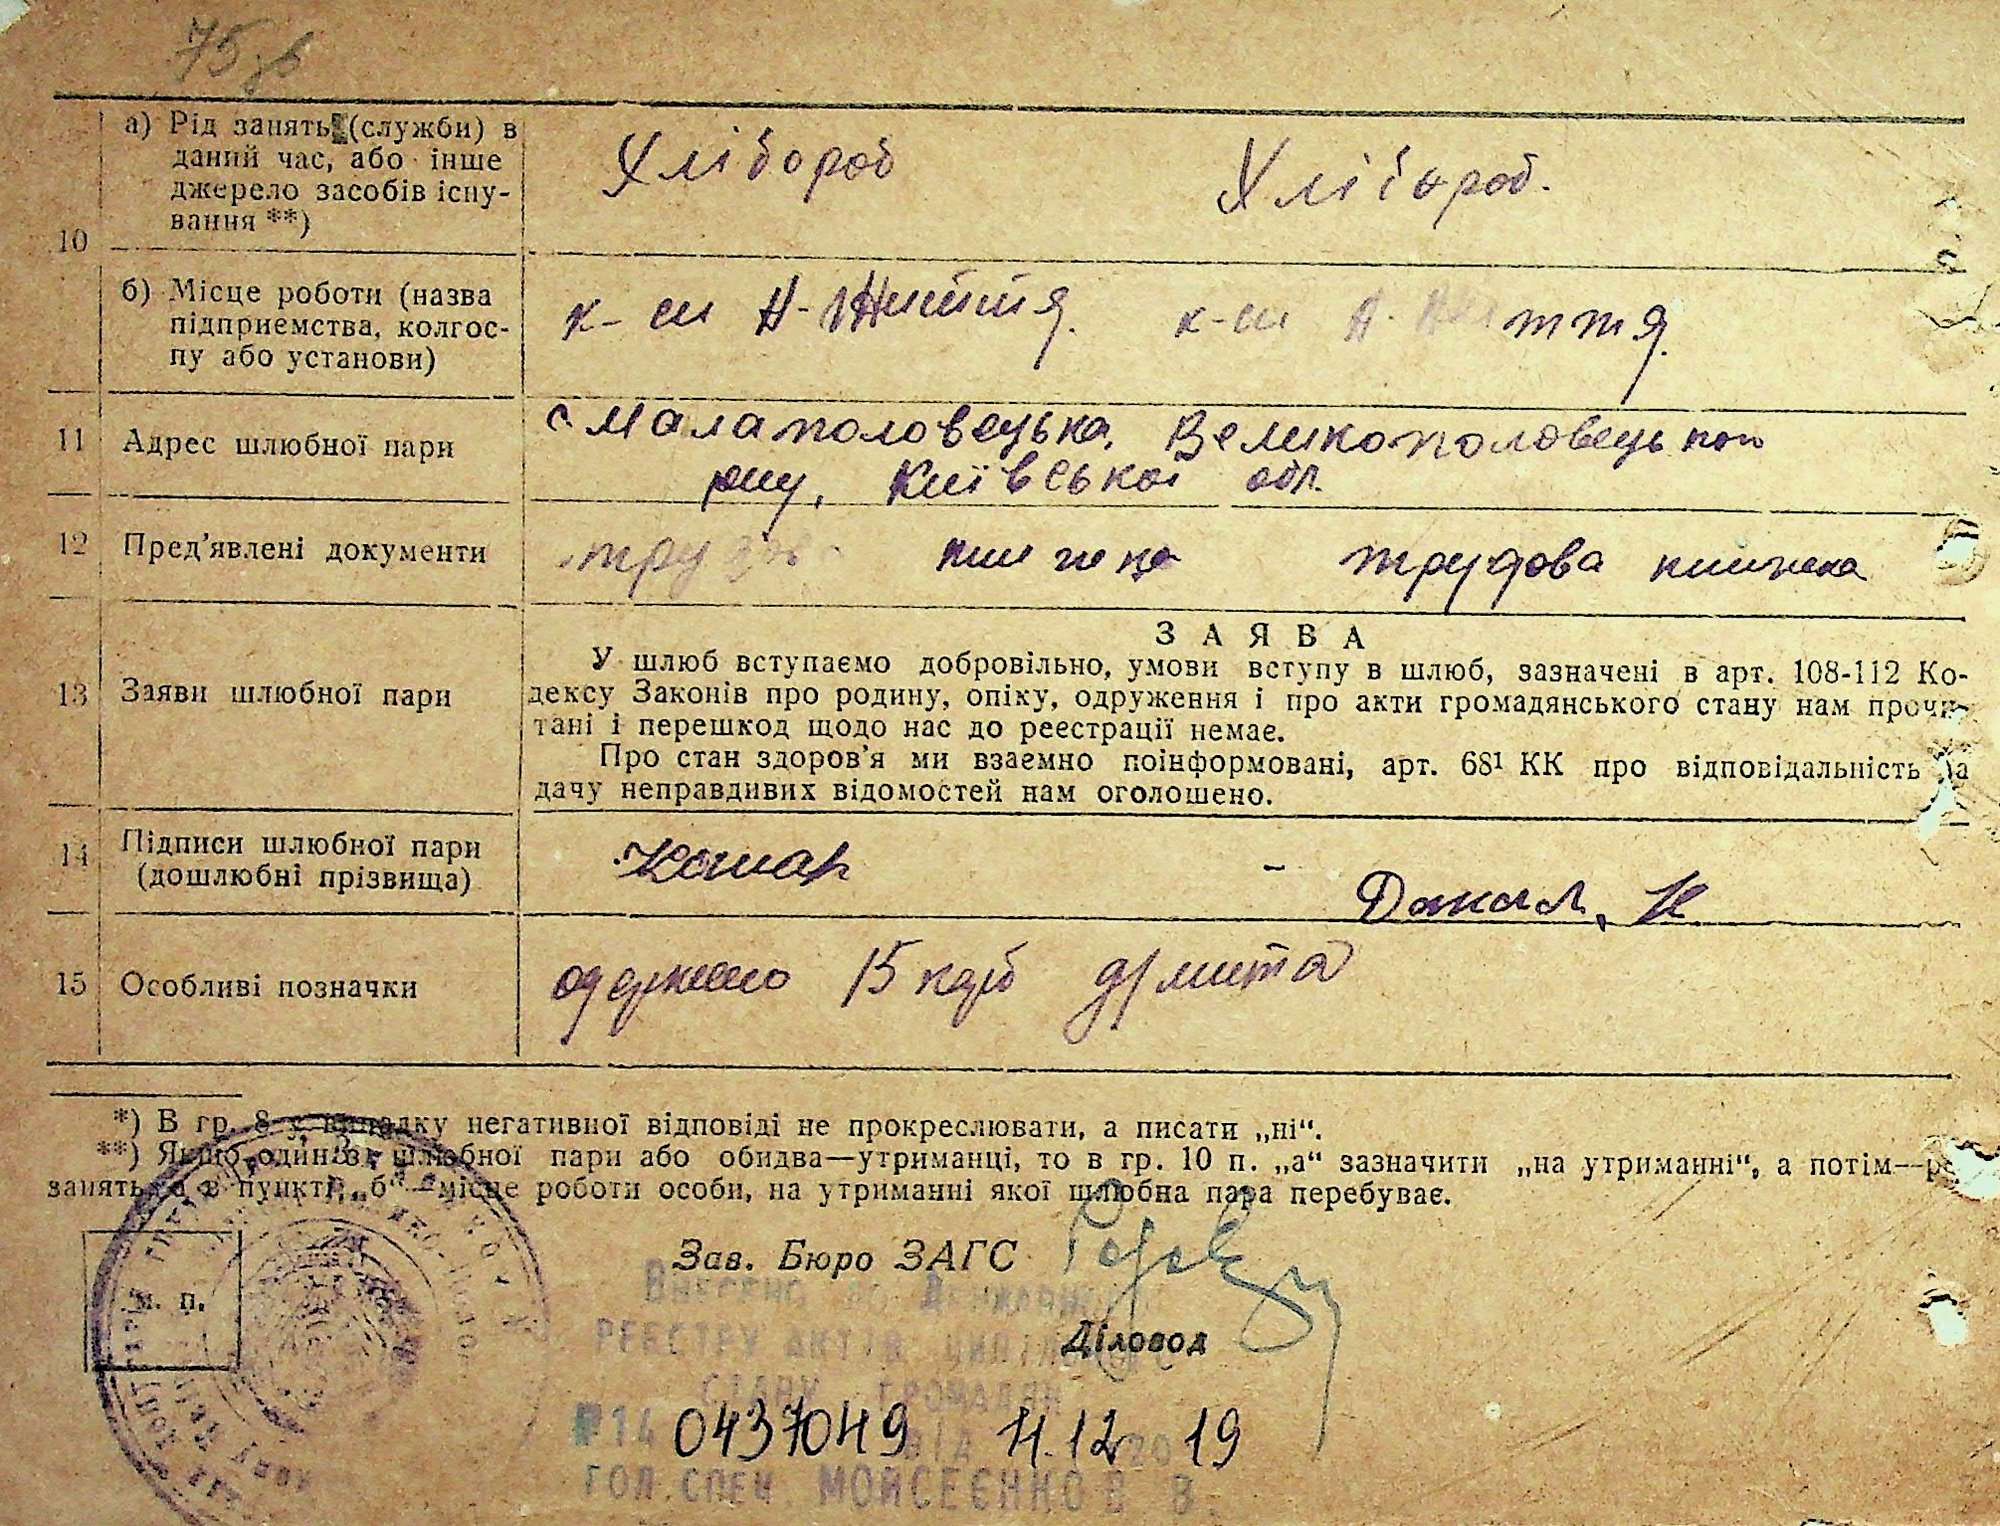 75 зв
а) Рід занять (служби) в
даний час, або інше
джерело засобів існу-
вання **)
Хлібороб Хлібороб.
10
б) Місце роботи (назва
підприемства, колгос-
пу або установи)
к-сп Н-Життя. к-сп Н-Життя.
11 Адрес шлюбної пари
с. Малаполовецька, Великополовецького
р-ну, Київської обл.
12 Пред'явлені документи
трудова книжка трудова книжка
13 Заяви шлюбної пари
ЗАЯВА
У шлюб вступаємо добровільно, умови вступу в шлюб, зазначені в арт. 108-112 Ко-
дексу Законів про родину, опіку, одруження і про акти громадянського стану нам прочи-
тані і перешкод щодо нас до реестрації немає.
Про стан здоров'я ми взаємно поінформовані, арт. 68¹ КК про відповідальність за
дачу неправдивих відомостей нам оголошено.
14 Підписи шлюбної пари
(дошлюбні прізвища)
15 Особливі позначки
одержано 15 карб д/мита
*) В гр. 8 у випадку негативної відповіді не прокреслювати, а писати „ні“.
**) Якщо один зі шлюбної пари або обидва—утриманці, то в гр. 10 п. „а“ зазначити „на утриманні“, а потім—рід
занять, а в пункті „б“—місце роботи особи, на утриманні якої шлюбна пара перебуває.
Зав. Бюро ЗАГС
м. п.
Внесено до Державного
реєстру актів цивільного
Діловод
стану громадян
№14 0437049 від 11.12 2019
Гол. спец. Мойсеєнков В.